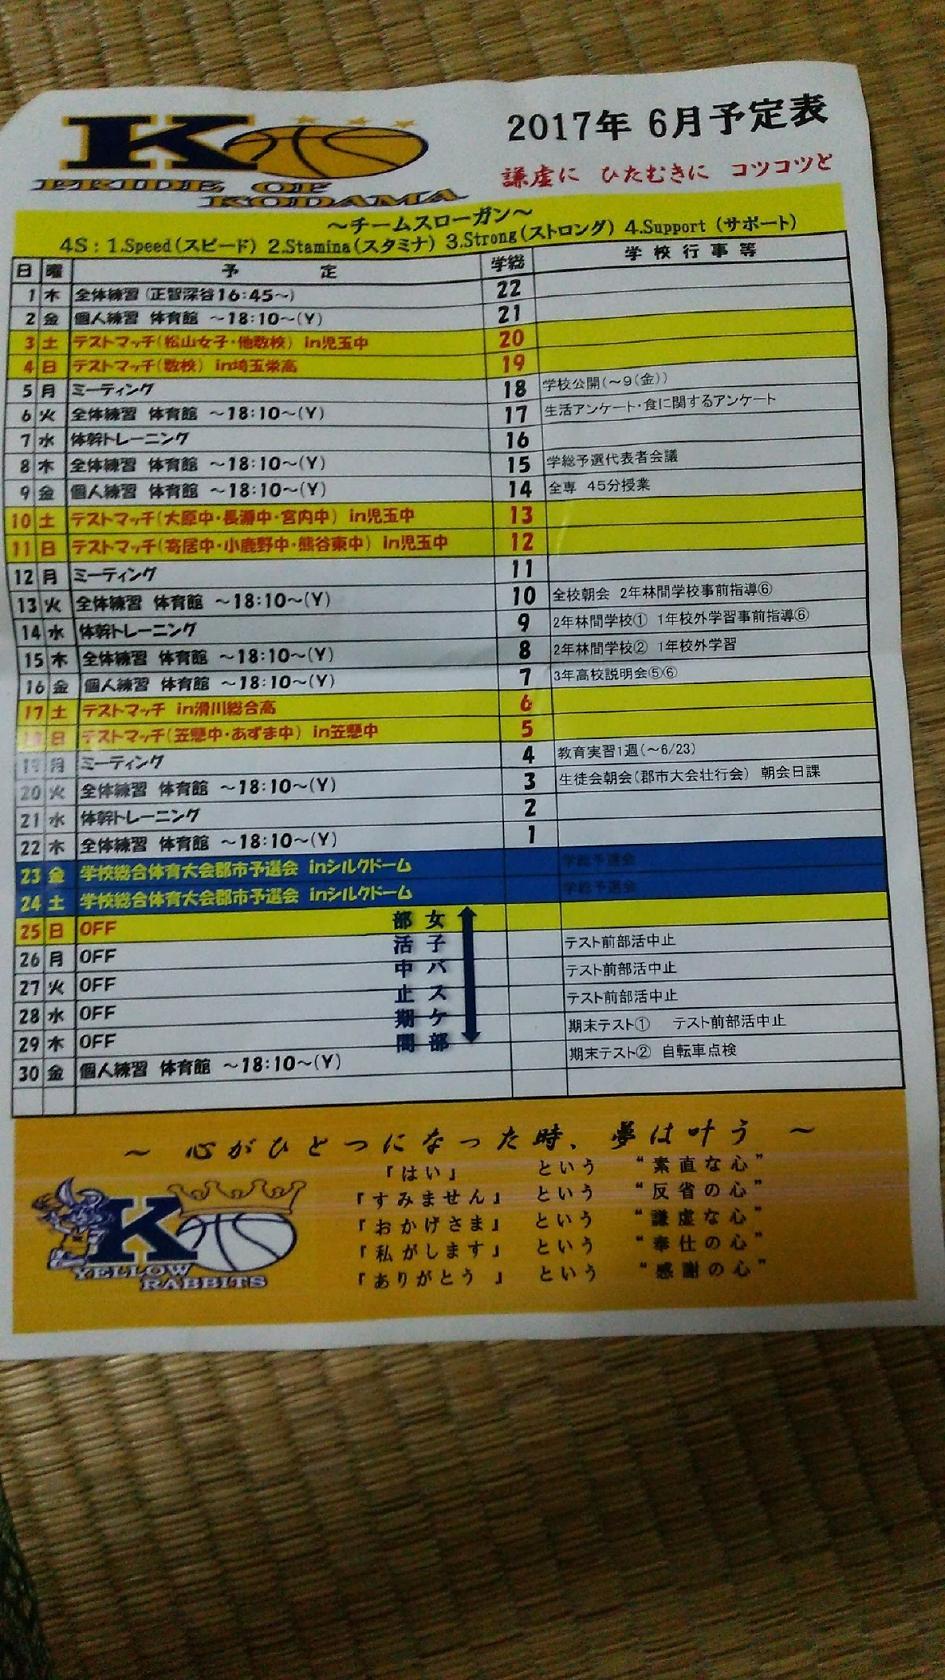 K
PRIDE OF
KODAMA
2017年 6月予定表
謙虚に ひたむきに コツコツと
～チームスローガン～
4S：1.Speed（スピード） 2.Stamina（スタミナ） 3.Strong（ストロング） 4.Support（サポート）
日 曜 予定 学総 学校行事等
1 木 全体練習（正智深谷16:45～） 22
2 金 個人練習 体育館 ～18:10～(Y) 21
3 土 テストマッチ（松山女子・他数校） in児玉中 20
4 日 テストマッチ（数校） in埼玉栄高 19
5 月 ミーティング 18 学校公開（～9（金））
6 火 全体練習 体育館 ～18:10～(Y) 17 生活アンケート・食に関するアンケート
7 水 体幹トレーニング 16
8 木 全体練習 体育館 ～18:10～(Y) 15 学総予選代表者会議
9 金 個人練習 体育館 ～18:10～(Y) 14 全専 45分授業
10 土 テストマッチ（大原中・長瀞中・宮内中） in児玉中 13
11 日 テストマッチ（寄居中・小鹿野中・熊谷東中） in児玉中 12
12 月 ミーティング 11
13 火 全体練習 体育館 ～18:10～(Y) 10 全校朝会 2年林間学校事前指導⑥
14 水 体幹トレーニング 9 2年林間学校① 1年校外学習事前指導⑥
15 木 全体練習 体育館 ～18:10～(Y) 8 2年林間学校② 1年校外学習
16 金 個人練習 体育館 ～18:10～(Y) 7 3年高校説明会⑤⑥
17 土 テストマッチ in滑川総合高 6
18 日 テストマッチ（笠懸中・あずま中） in笠懸中 5
19 月 ミーティング 4 教育実習1週（～6/23）
20 火 全体練習 体育館 ～18:10～(Y) 3 生徒会朝会（郡市大会壮行会） 朝会日課
21 水 体幹トレーニング 2
22 木 全体練習 体育館 ～18:10～(Y) 1
23 金 学校総合体育大会郡市予選会 inシルクドーム 学総予選会
24 土 学校総合体育大会郡市予選会 inシルクドーム 学総予選会
25 日 OFF
26 月 OFF テスト前部活中止
27 火 OFF テスト前部活中止
28 水 OFF テスト前部活中止
29 木 OFF 期末テスト① テスト前部活中止
30 金 個人練習 体育館 ～18:10～(Y) 期末テスト② 自転車点検
女子バスケ部
部活中止期間
～ 心がひとつになった時、夢は叶う ～
『はい』 という “素直な心”
『すみません』 という “反省の心”
『おかげさま』 という “謙虚な心”
『私がします』 という “奉仕の心”
『ありがとう 』 という “感謝の心”
K
YELLOW
RABBITS